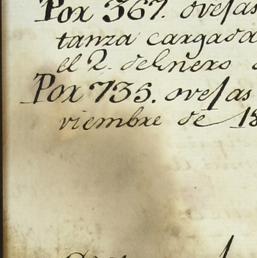 Por 367. ovejas
tanza cargada
el 2. de Enero
Por 735. ovejas
viembre de 18